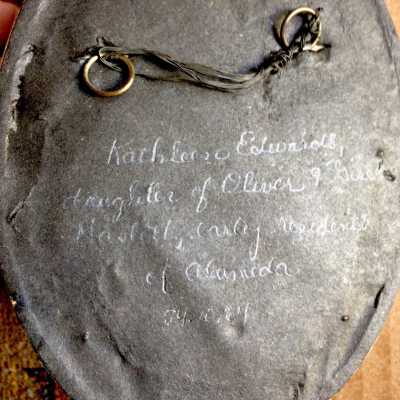 Kathleen Edwards,
daughter of Oliver &
Haslett, early residents
of Alameda
74.10.24